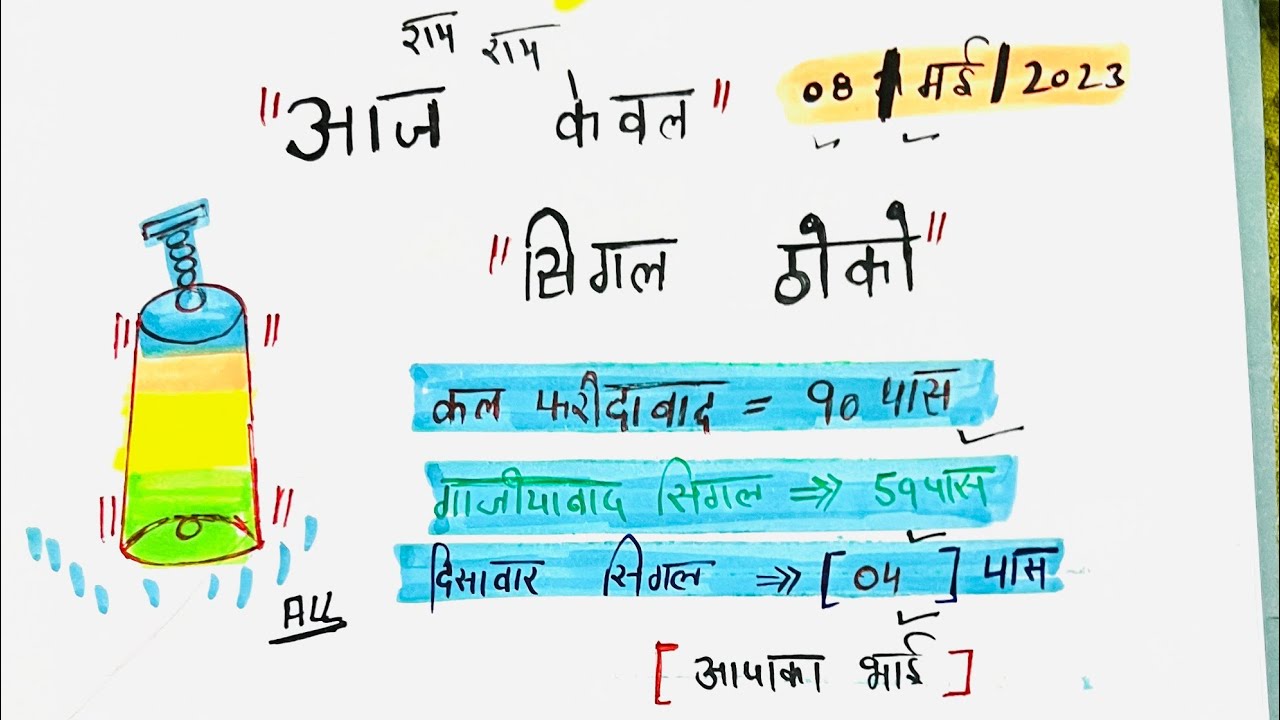 राम राम
"आज केवल" 08 / मई / 2023
"सिगल ठोको"
कल फरीदाबाद = १० पास
गाजीयाबाद सिगल ⇒» 59 पास
दिसावार सिगल ⇒» [ 04 ] पास
ALL
[ आपाका भाई ]